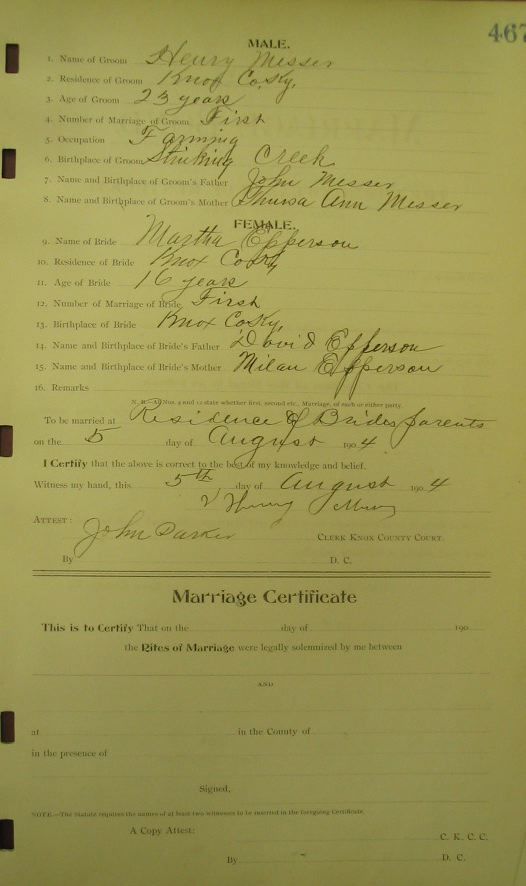 467
MALE.
1. Name of Groom Henry Messer
2. Residence of Groom Knox Co. Ky.
3. Age of Groom 23 years
4. Number of Marriage of Groom First
5. Occupation Farming
6. Birthplace of Groom Stinking Creek
7. Name and Birthplace of Groom's Father John Messer
8. Name and Birthplace of Groom's Mother Thursa Ann Messer
FEMALE.
9. Name of Bride Martha Epperson
10. Residence of Bride Knox Co Ky
11. Age of Bride 16 years
12. Number of Marriage of Bride First
13. Birthplace of Bride Knox Co Ky,
14. Name and Birthplace of Bride's Father David Epperson
15. Name and Birthplace of Bride's Mother Milan Epperson
16. Remarks
N. B.—At Nos. 4 and 12 state whether first, second etc., Marriage, of each or either party.
To be married at Residence of Brides parents
on the 5 day of August 1904
I Certify that the above is correct to the best of my knowledge and belief.
Witness my hand, this 5th day of August 1904
Henry
ATTEST:
John Parker CLERK KNOX COUNTY COURT.
By D. C.
Marriage Certificate
This is to Certify That on the day of 190
the Rites of Marriage were legally solemnized by me between
AND
at in the County of
in the presence of
Signed,
NOTE.—The Statute requires the names of at least two witnesses to be inserted in the foregoing Certificate.
A Copy Attest:
C. K. C. C.
By D. C.